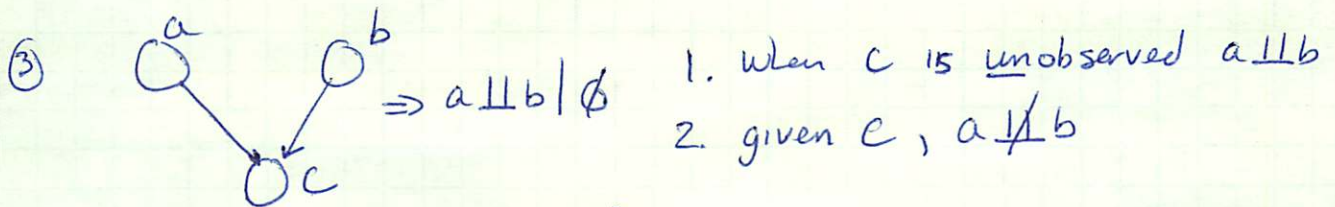 ③ a b
c
⇒ a ⫫ b | ∅
1. When c is unobserved a ⫫ b
2. given c, a ⫫̸ b